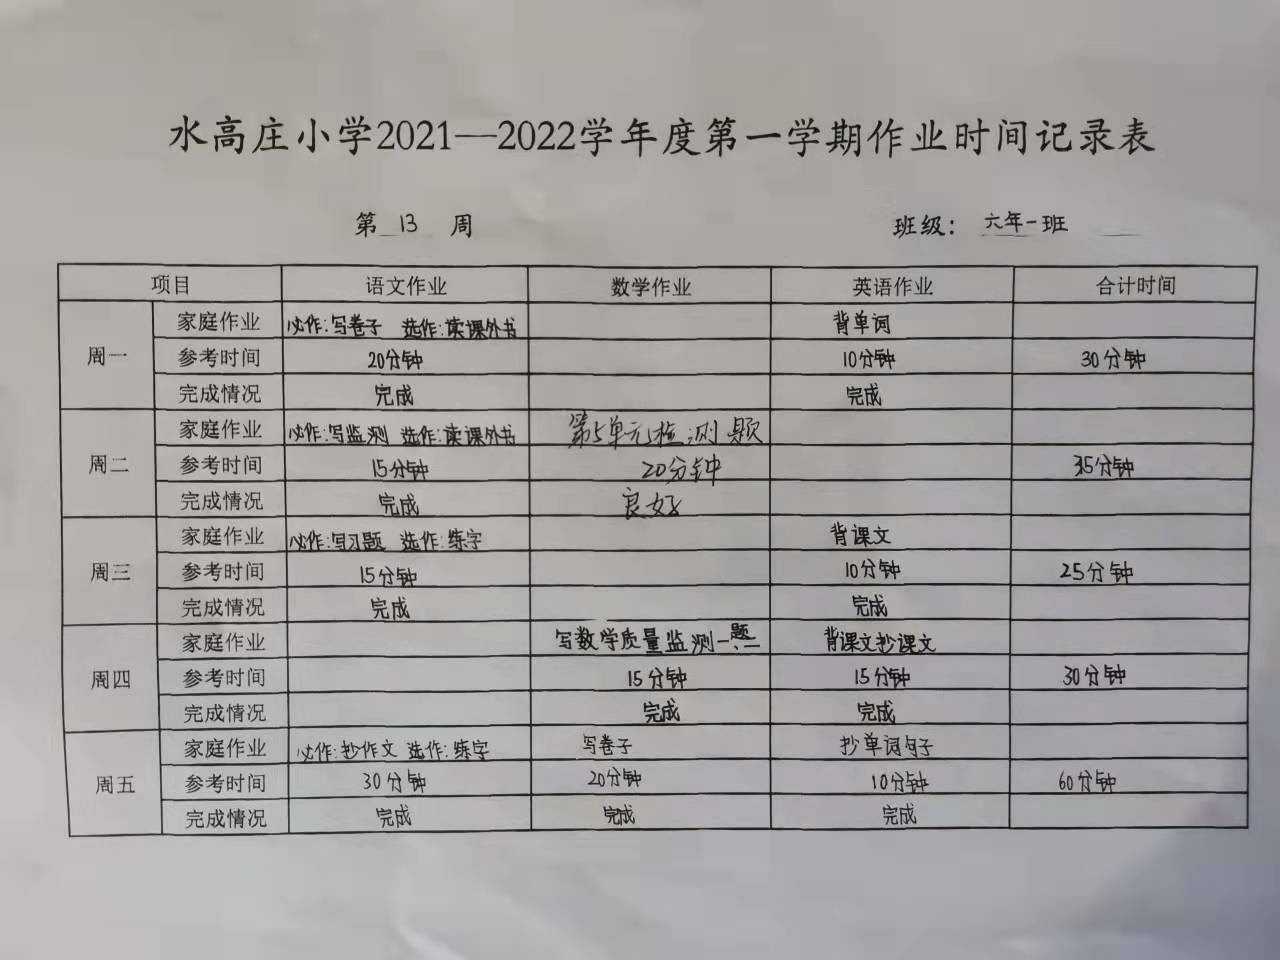 水高庄小学2021—2022学年度第一学期作业时间记录表
第 13 周 班级：六年一班
项目 语文作业 数学作业 英语作业 合计时间
周一
家庭作业 必作:写卷子 选作:读课外书 背单词
参考时间 20分钟 10分钟 30分钟
完成情况 完成 完成
周二
家庭作业 必作:写监测 选作:读课外书 第5单元检测题
参考时间 15分钟 20分钟 35分钟
完成情况 完成 良好
周三
家庭作业 必作:写习题 选作:练字 背课文
参考时间 15分钟 10分钟 25分钟
完成情况 完成 完成
周四
家庭作业 写数学质量监测一.二题 背课文抄课文
参考时间 15分钟 15分钟 30分钟
完成情况 完成 完成
周五
家庭作业 必作:抄作文 选作:练字 写卷子 抄单词句子
参考时间 30分钟 20分钟 10分钟 60分钟
完成情况 完成 完成 完成